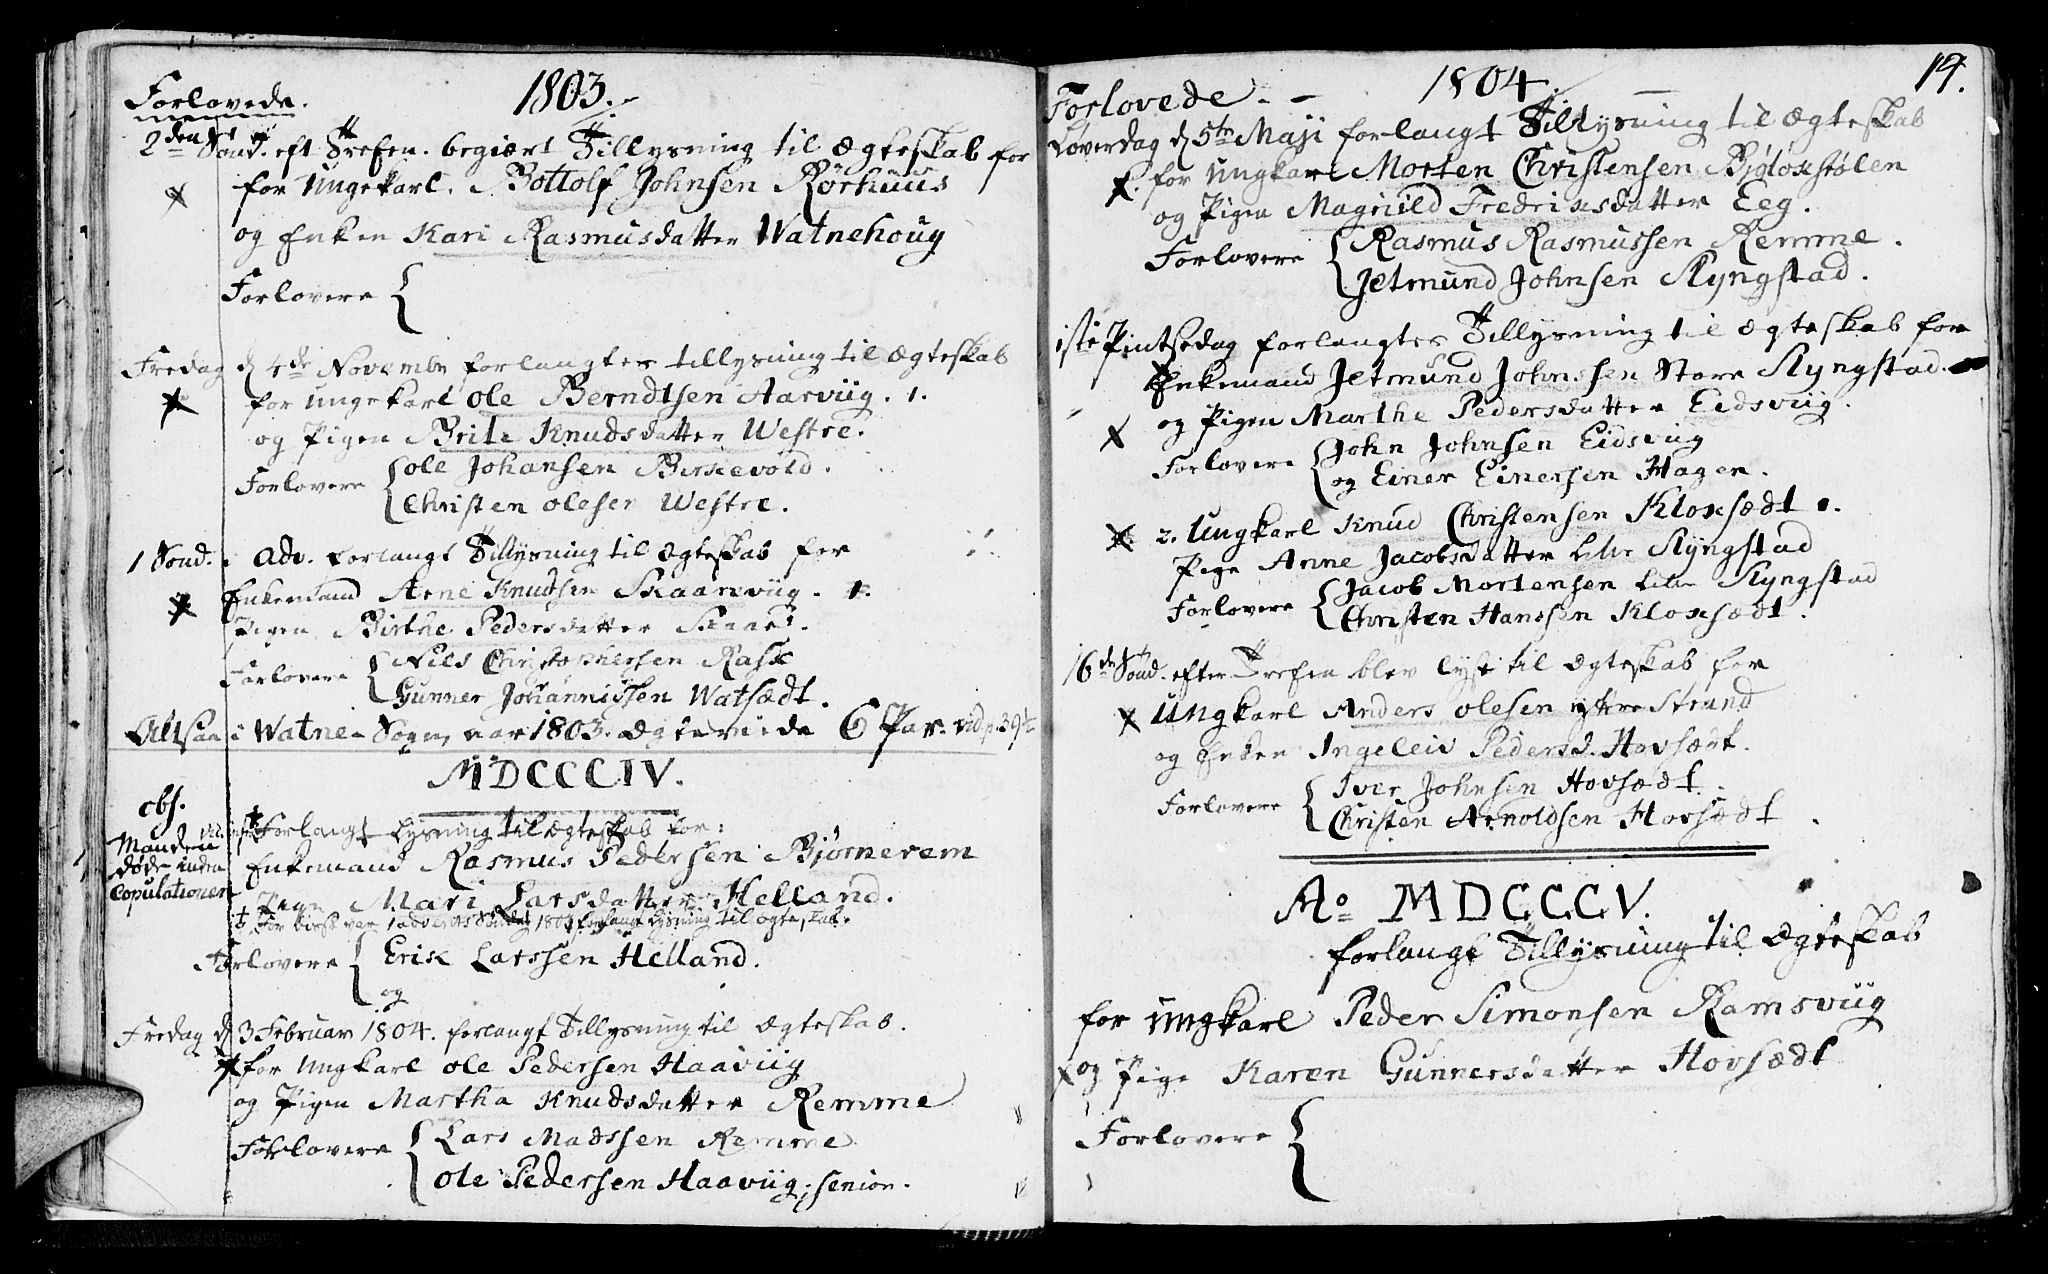 Forlovede.
1803.
2den Sönd. eft Trefen. begiært Tillysning til Ægteskab for
for Ungekarl. Bottolf Johnsen Rörhuus
og Enken Kari Rasmusdatter Watnehoug
Forlovere
Fredag d 4de Novembr forlangtes tillysning til Ægteskab
for Ungekarl Ole Berndtsen Aarviig. 1.
og Pigen Brite Knudsdatter Westre.
Forlovere Ole Johansen Birkevold.
Christen Olesen Westre.
1 Sönd. i Adv. forlangt Tillysning til Ægteskab for
Enkemand Arne Knudsen Skaarviig. 1.
Pigen Birthe Pedersdatter
Forlovere Niels Christophersen
Gunner Johannissen Watsædt.
Altsaa i Watne-Sogn, aar 1803. Ægteviede 6 Par. vid p. 39½
MDCCCIV.
obs.
Manden
döde inden
Copulationen
Forlangt Lysning til Ægteskab for:
Enkemand Rasmus Pedersen Björnerem
Pigen Mari Larsdatter Helland.
forlangt Lysning til Ægteskab.
Forlovere Erik Larssen Helland.
og
Fredag d 3 Februar 1804. forlangt Tillysning til Ægteskab.
for Ungkarl Ole Pedersen Haaviig
og Pigen Martha Knudsdatter Remme
Forlovere Lars Madssen Remme
Ole Pedersen Haaviig, senior.
Forlovede.
1804.
19.
Löverdag d 5te Maji forlangt Tillysning til Ægteskab
for Ungkarl Morten Christensen
og Pigen Magnild Fredrixsdatter Eeg.
Forlovere Rasmus Rasmussen Remme.
Jetmund Johnsen Klyngstad.
1ste Pintsedag forlangtes Tillysning til Ægteskab for
Enkemand Jetmund Johnssen Store Klyngstad.
og Pigen Marthe Pedersdatter Eidsviig.
Forlovere John Johnsen Eidsviig
og Einer Einersen Hagen.
2. Ungkarl Knud Christensen Kloxsædt.
Pige Anne Jacobsdatter Lille Klyngstad
Forlovere Jacob Mortensen Lille Klyngstad
Christen Hanssen Kloxsædt.
16de Sönd. efter Trefen blev lyst til Ægteskab for
Ungkarl Anders Olesen Yttre Strand
og Enken Ingeleiv Pedersd. Hovsædt.
Forlovere Iver Johnsen Hovsædt.
Christen Arnoldsen Hovsædt.
Ao MDCCCV.
forlangt Tillysning til Ægteskab
for Ungkarl Peder Simonsen Ramsviig
og Pige Karen Gunnersdatter Hovsædt
Forlovere